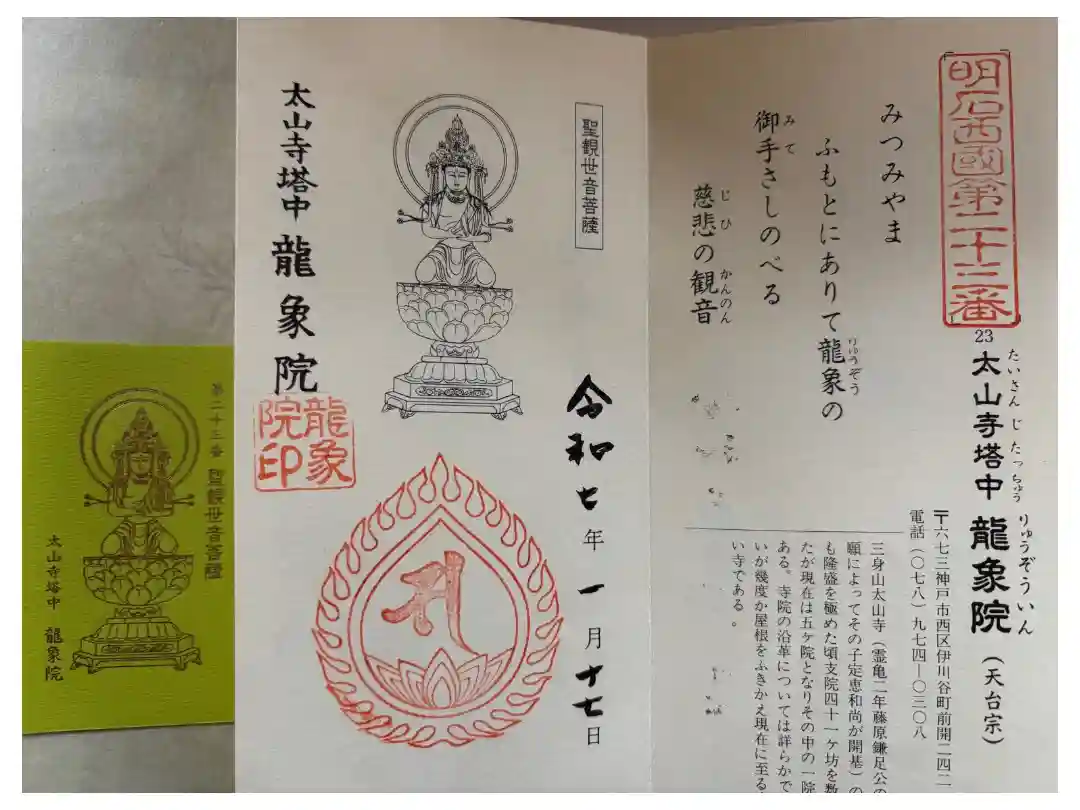 明石西國第二十三番
23
太山寺塔中 龍象院 (天台宗)
たいさんじたっちゅう りゅうぞういん
〒六七三神戸市西区伊川谷町前開二四二
電話(〇七八)九七四―〇三〇八
みつみやま
ふもとにありて龍象の
りゅうぞう
御手さしのべる
みて
慈悲の観音
じひ かんのん
三身山太山寺(霊亀二年藤原鎌足公の
願によってその子定恵和尚が開基)の
も隆盛を極めた頃支院四十一ケ坊を数
たが現在は五ケ院となりその中の一院
ある。寺院の沿革については詳らかで
いが幾度か屋根をふきかえ現在に至る
い寺である。
聖観世音菩薩
令和七年一月十七日
太山寺塔中 龍象院
龍象
院印
第二十三番 聖観世音菩薩
太山寺塔中 龍象院